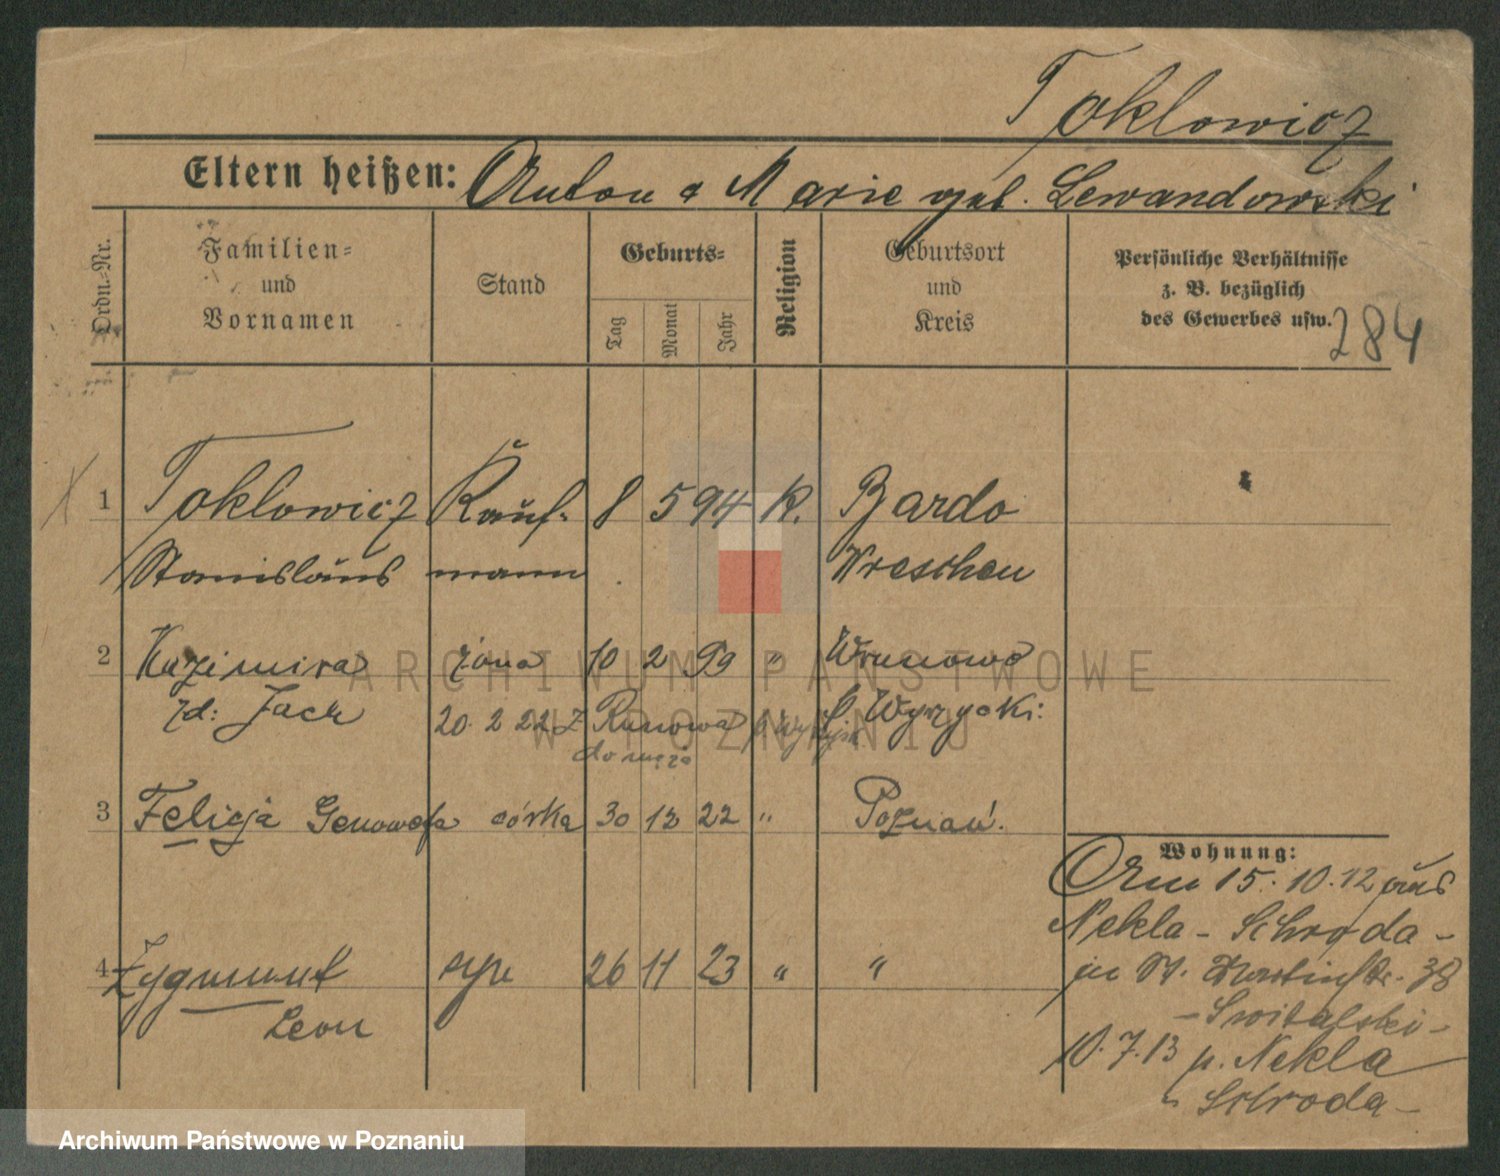 Toklowicz
Eltern heißen: Anton & Marie geb. Lewandowski
Ordn.-Nr.
Familien-
und
Vornamen
Stand
Geburts-
Tag
Monat
Jahr
Religion
Geburtsort
und
Kreis
Persönliche Verhältnisse
z. B. bezüglich
des Gewerbes usw.
284
1 Toklowicz Kauf- 8 5 94 K. Bardo
Stanislaus mann Wreschen
2 Kazimira żona 10 2 99 "
zd: Jach 20. 2 22 z Runowa p. Wyrzyski:
do męża
3 Felicja Genowefa córka 30 12 22 " Poznań.
4 Zygmunt syn 26 11 23 " "
Leon
Wohnung:
Am 15. 10. 12 aus
Nekla - Schroda -
in St. Martinstr. 38
- Switalski -
10. 7. 13 p. Nekla
" Schroda -
ARCHIWUM PAŃSTWOWE
W POZNANIU
Archiwum Państwowe w Poznaniu